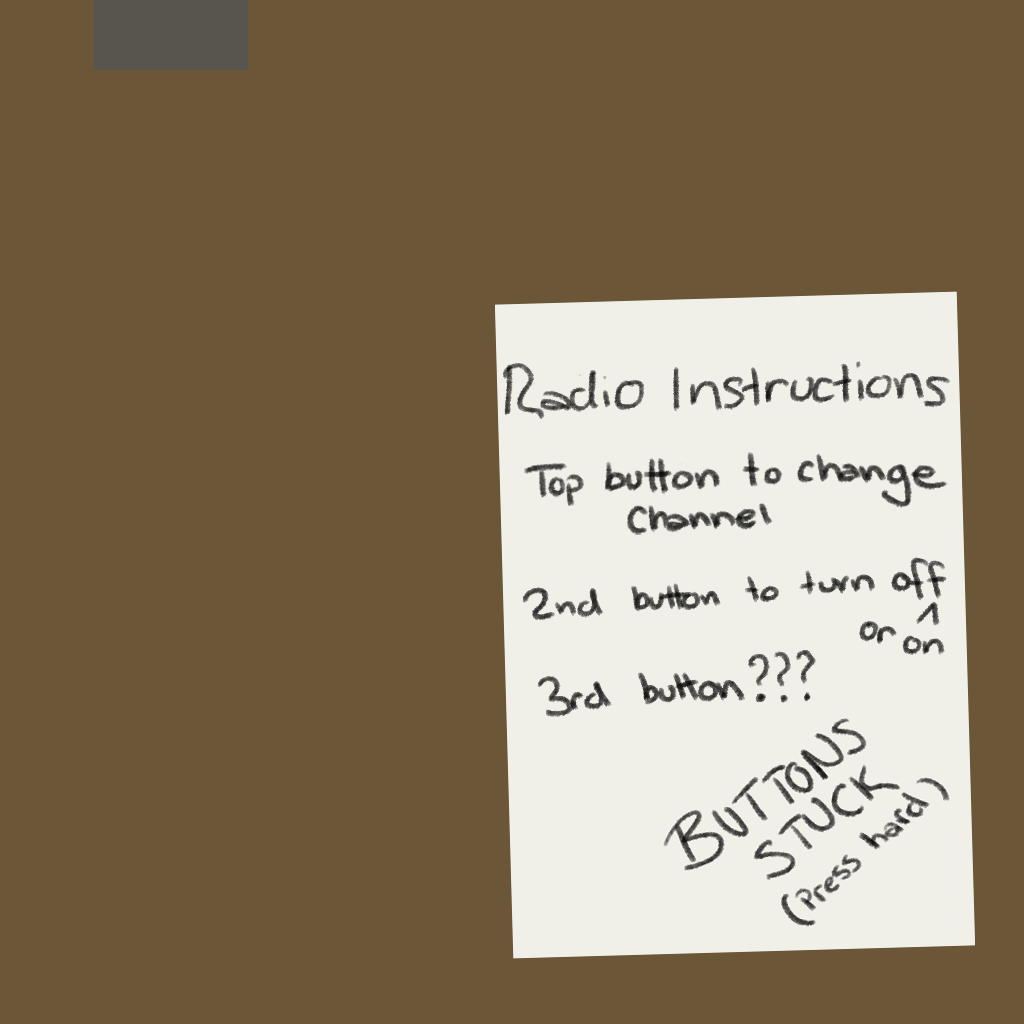 Radio Instructions
Top button to change
Channel
2nd button to turn off
^
or on
3rd button???
BUTTONS
STUCK
(Press hard)